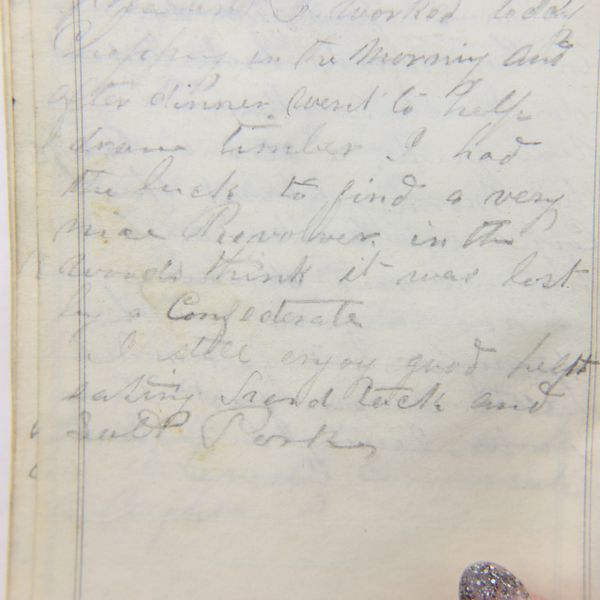 I worked today
Chopping in the Morning and
after dinner went to help
draw timber I had
the luck to find a very
nice Revovver in the
woods think it was lost
by a Confederate
I still enjoy good helth
eating hard tack and
Salt Pork